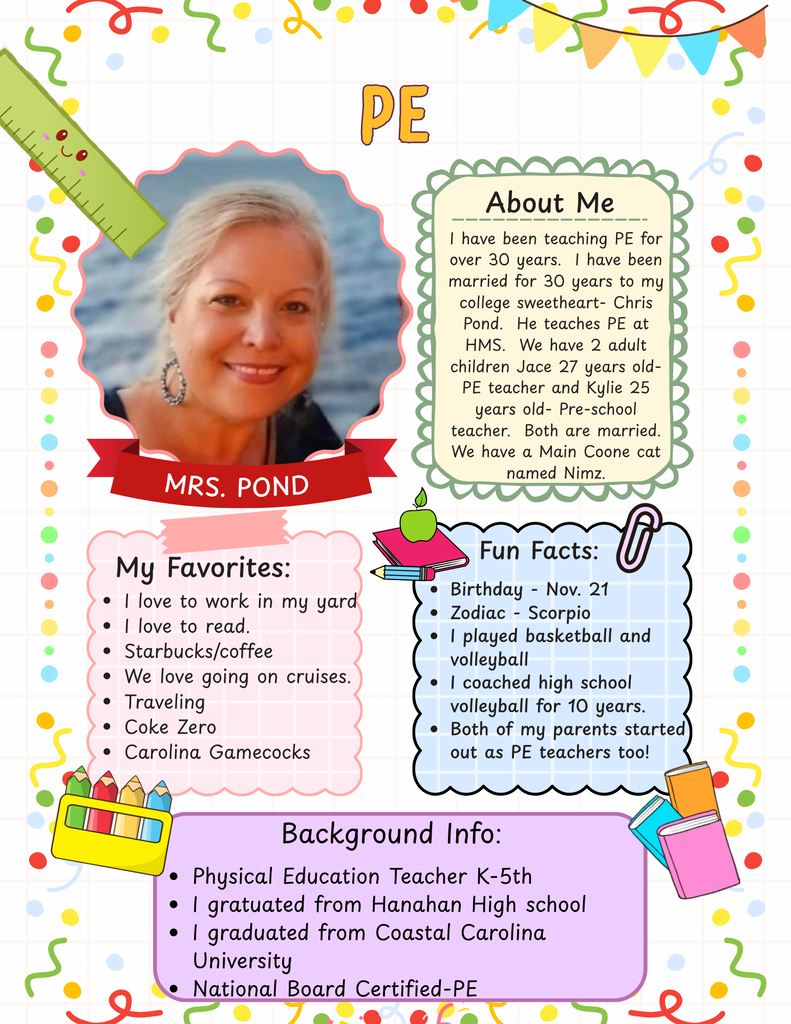 PE
MRS. POND
About Me
I have been teaching PE for
over 30 years. I have been
married for 30 years to my
college sweetheart- Chris
Pond. He teaches PE at
HMS. We have 2 adult
children Jace 27 years old-
PE teacher and Kylie 25
years old- Pre-school
teacher. Both are married.
We have a Main Coone cat
named Nimz.
My Favorites:
• I love to work in my yard
• I love to read.
• Starbucks/coffee
• We love going on cruises.
• Traveling
• Coke Zero
• Carolina Gamecocks
Fun Facts:
• Birthday - Nov. 21
• Zodiac - Scorpio
• I played basketball and
volleyball
• I coached high school
volleyball for 10 years.
• Both of my parents started
out as PE teachers too!
Background Info:
• Physical Education Teacher K-5th
• I gratuated from Hanahan High school
• I graduated from Coastal Carolina
University
• National Board Certified-PE